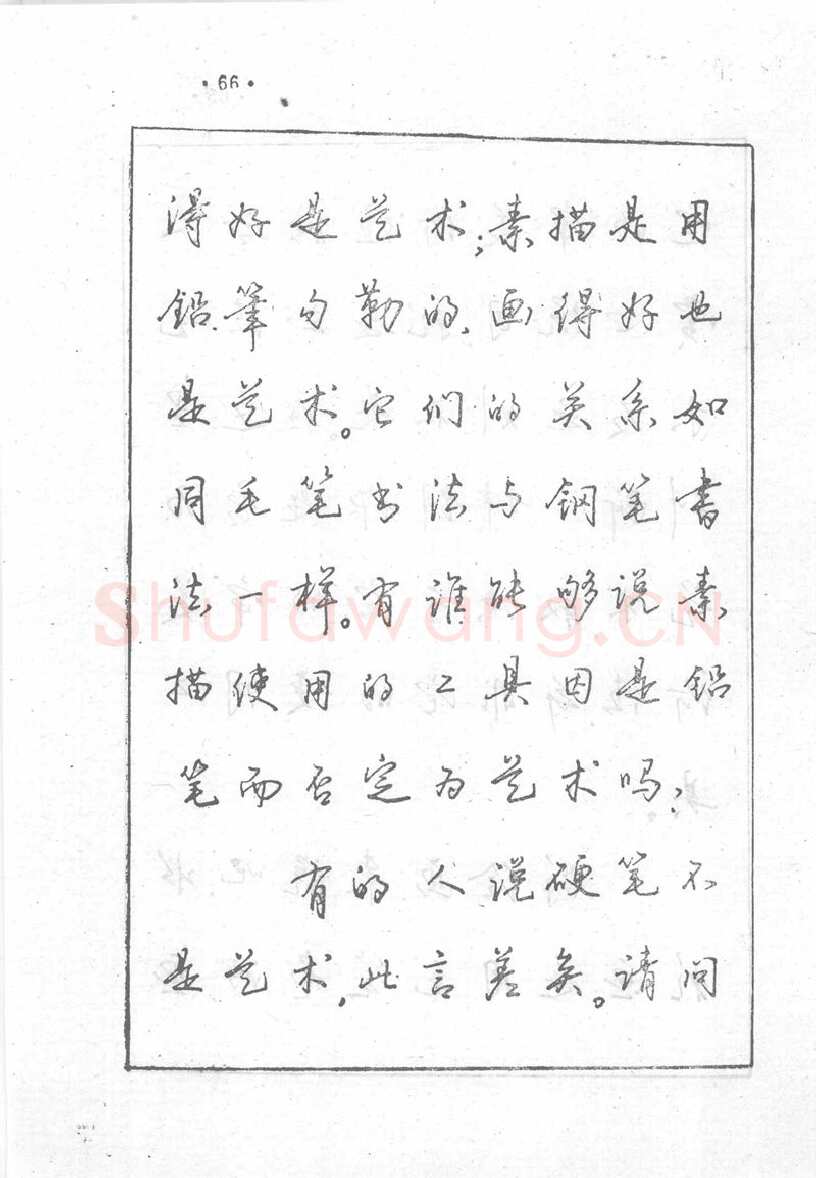 ·66·
得好是艺术;素描是用
鉛筆勾勒的,画得好也
是艺术。它们的关系如
同毛笔书法与钢笔書
法一样。有谁能够说素
描使用的工具因是铅
笔而否定为艺术吗?
有的人说硬笔不
是艺术,此言差矣。请问
Shufawang.CN